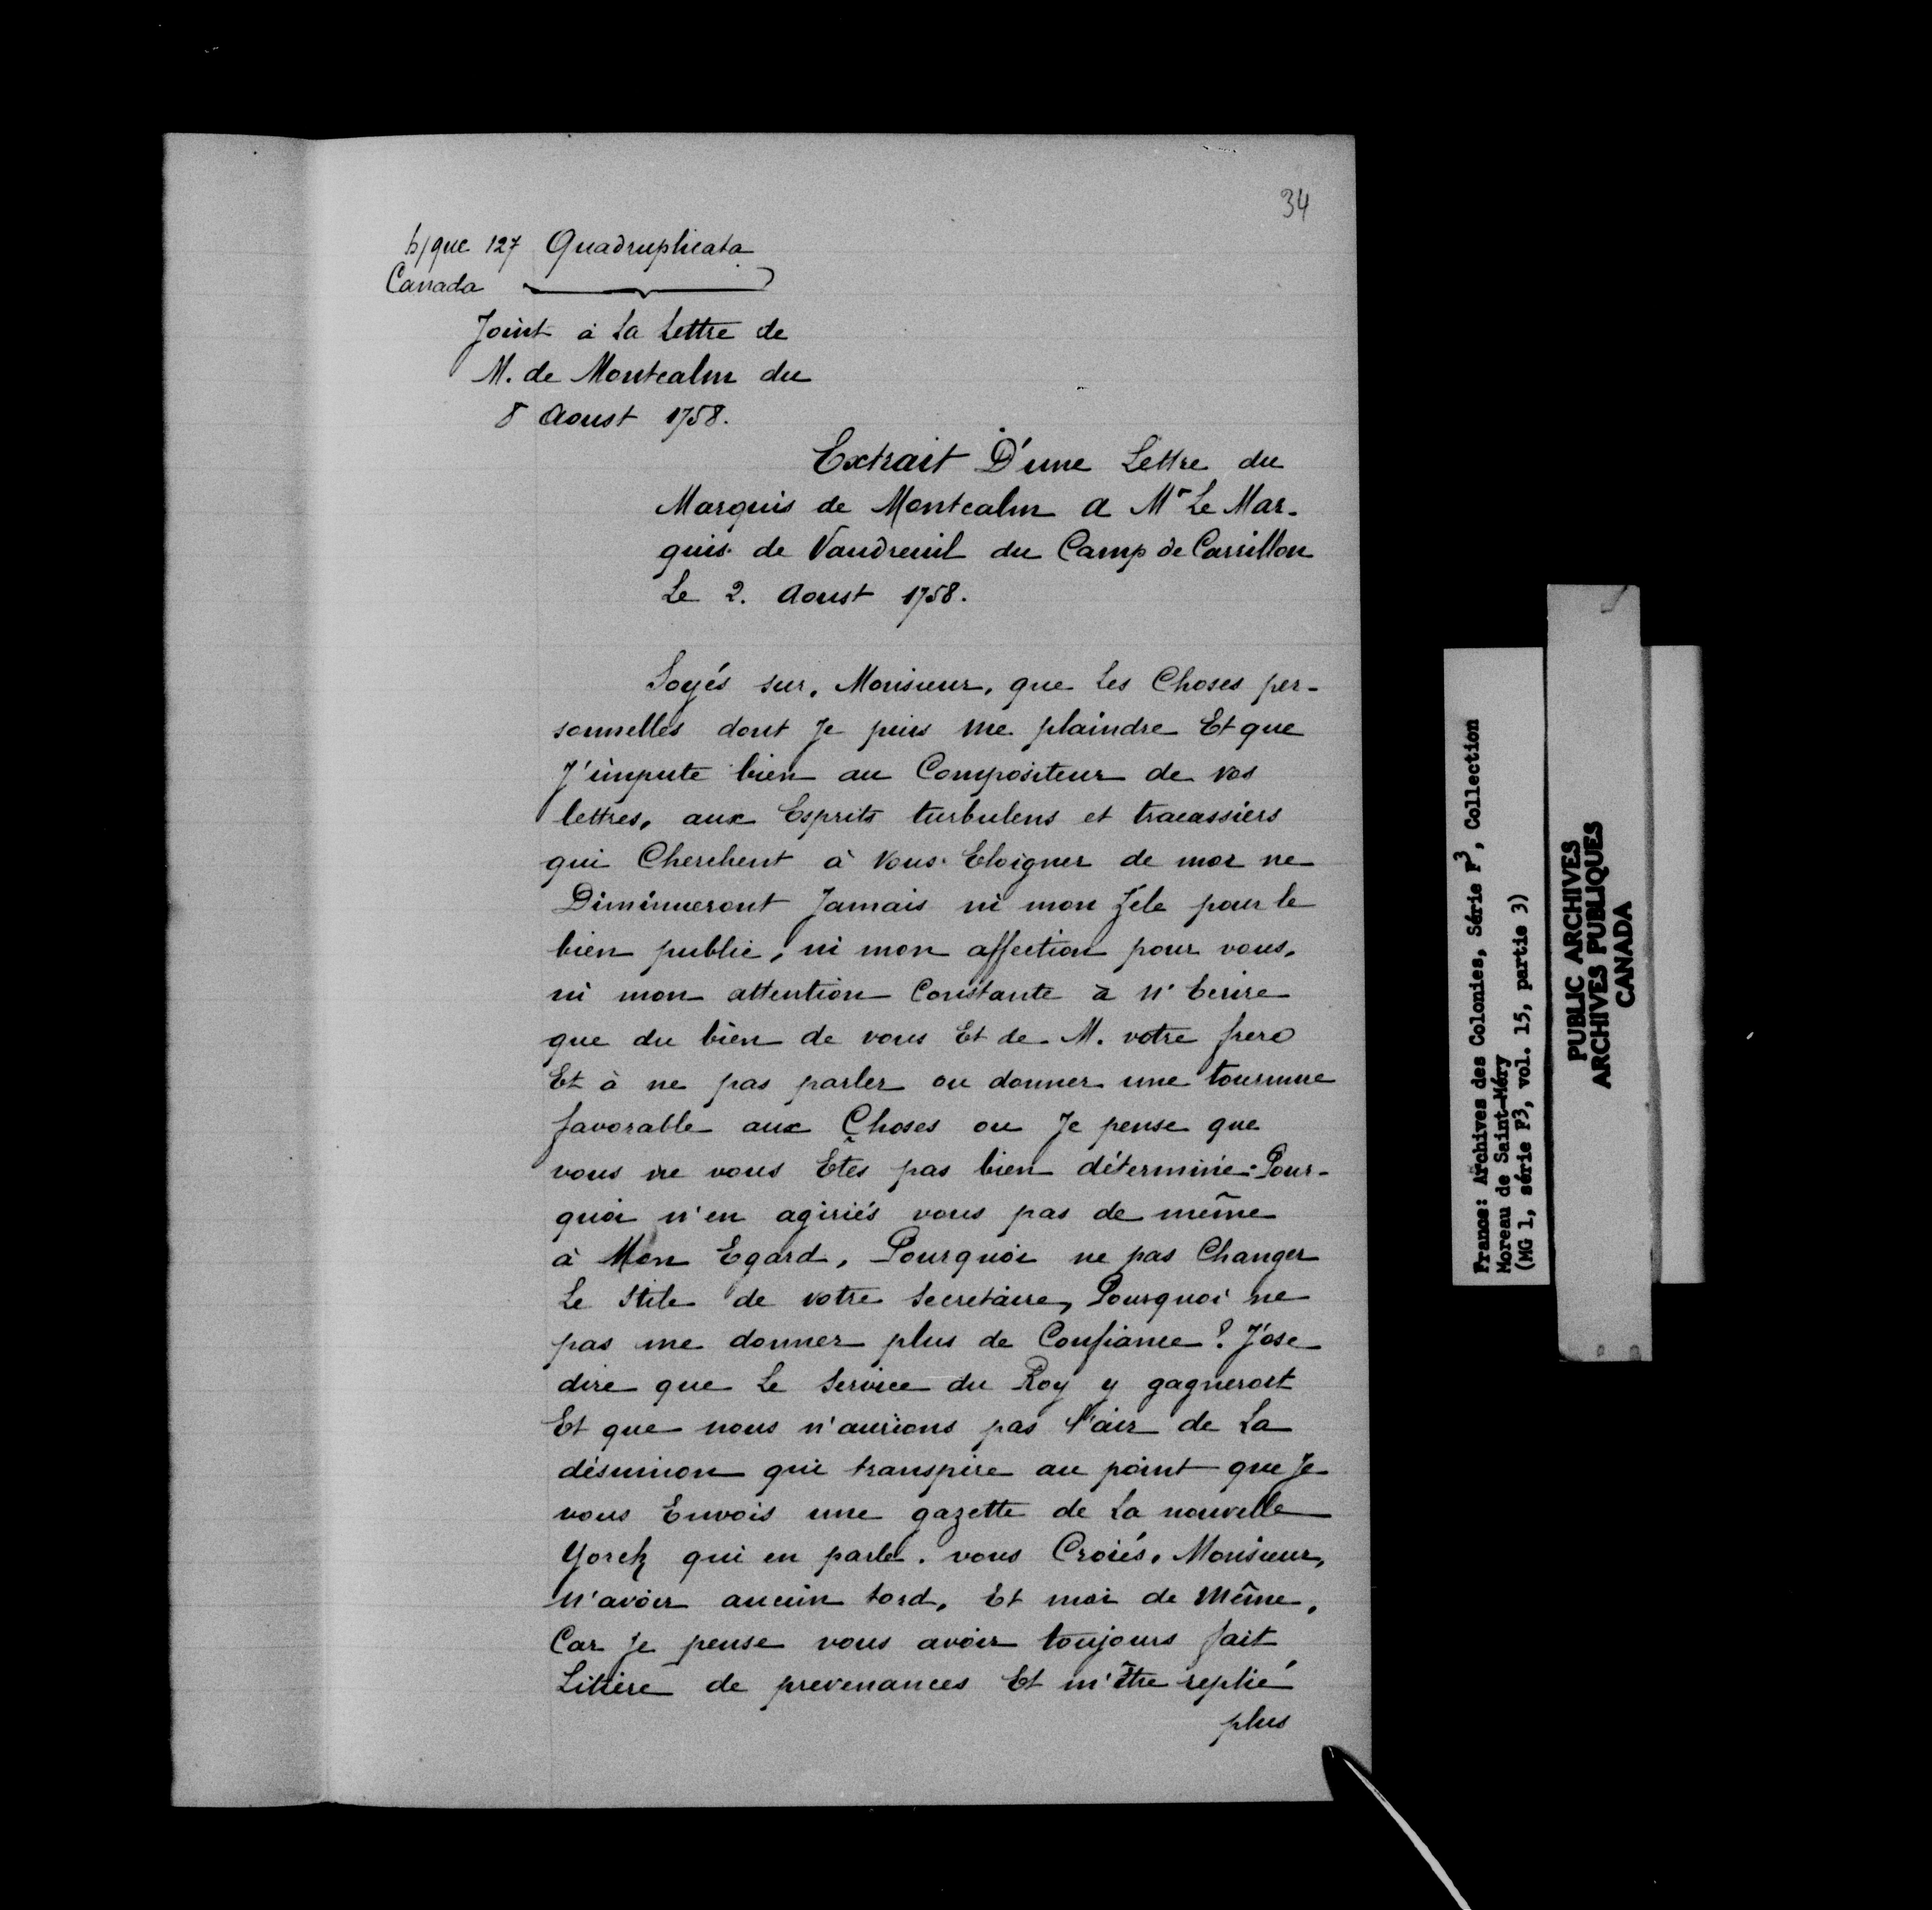 34
b/que 127 Quadruplicata
Canada
Joint à La Lettre de
M. de Montcalm du
8 Aoust 1758.
Extrait D'une Lettre du
Marquis de Montcalm a Mr Le Mar-
quis de Vaudreuil du Camp de Carrillon
Le 2. Aoust 1758.
Soyés sur, Monsieur, que Les Choses per-
sonnelles dont Je puis me plaindre Et que
J'impute bien au Compositeur de vos
lettres, aux Esprits turbulens et tracassiers
qui Cherchent à Vous Eloigner de moi ne
Diminueront Jamais ni mon Zéle pour le
bien public, ni mon affection pour vous,
ni mon attention Constante à N'Ecrire
que du bien de vous Et de M. votre frere
Et à ne pas parler ou donner une tournure
favorable aux Choses ou Je pense que
vous ne vous Etes pas bien déterminé. Pour-
quoi n'en agiriés vous pas de même
à Mon Egard, Pourquoi ne pas Changer
Le Stile de votre Secretaire, Pourquoi ne
pas me donner plus de Confiance? J'ose
dire que Le Service du Roy y gagneroit
Et que nous n'aurions pas l'air de La
désunion qui transpire au point que Je
vous Envois une gazette de La nouvelle
Yorck qui en parle. vous Croiés, Monsieur,
N'avoir aucun tord, Et moi de Même,
Car Je pense vous avoir toujours fait
Litiere de prevenances Et m'être replié
plus
France: Archives des Colonies, Série F3, Collection
Moreau de Saint-Méry
(MG 1, série F3, vol. 15, partie 3)
PUBLIC ARCHIVES
ARCHIVES PUBLIQUES
CANADA